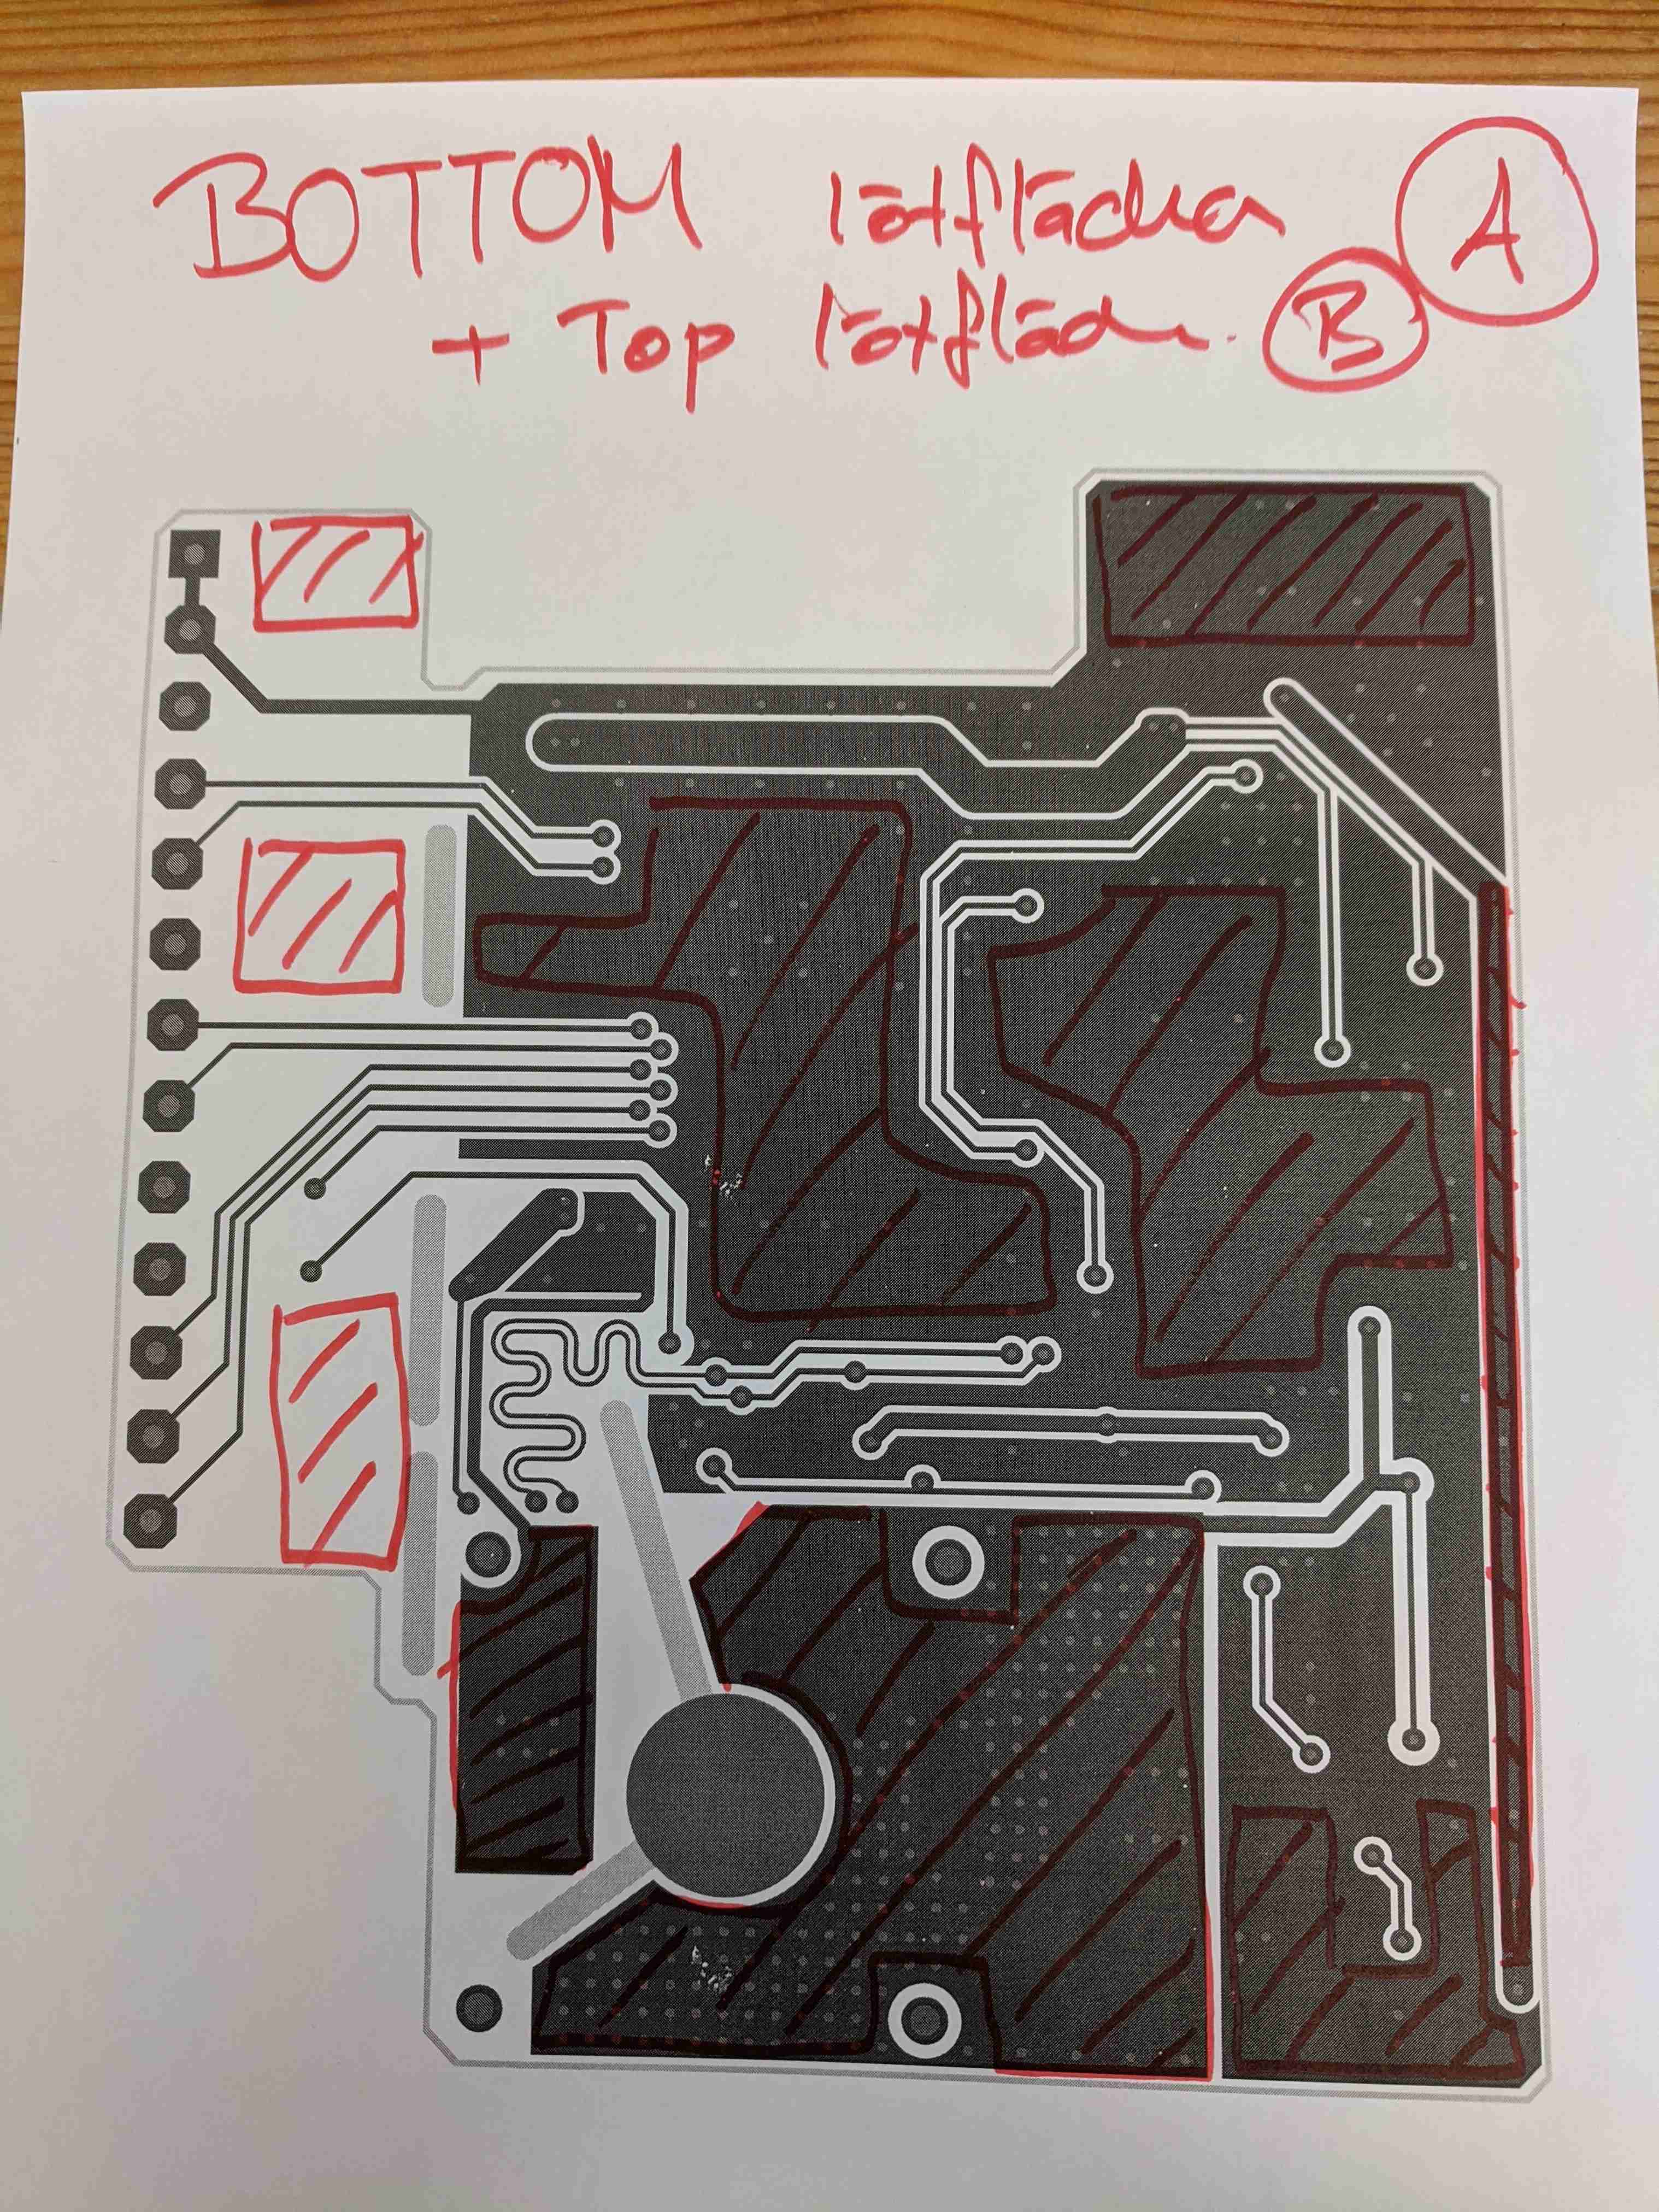 BOTTOM lötflächen A
+ Top lötfläche. B